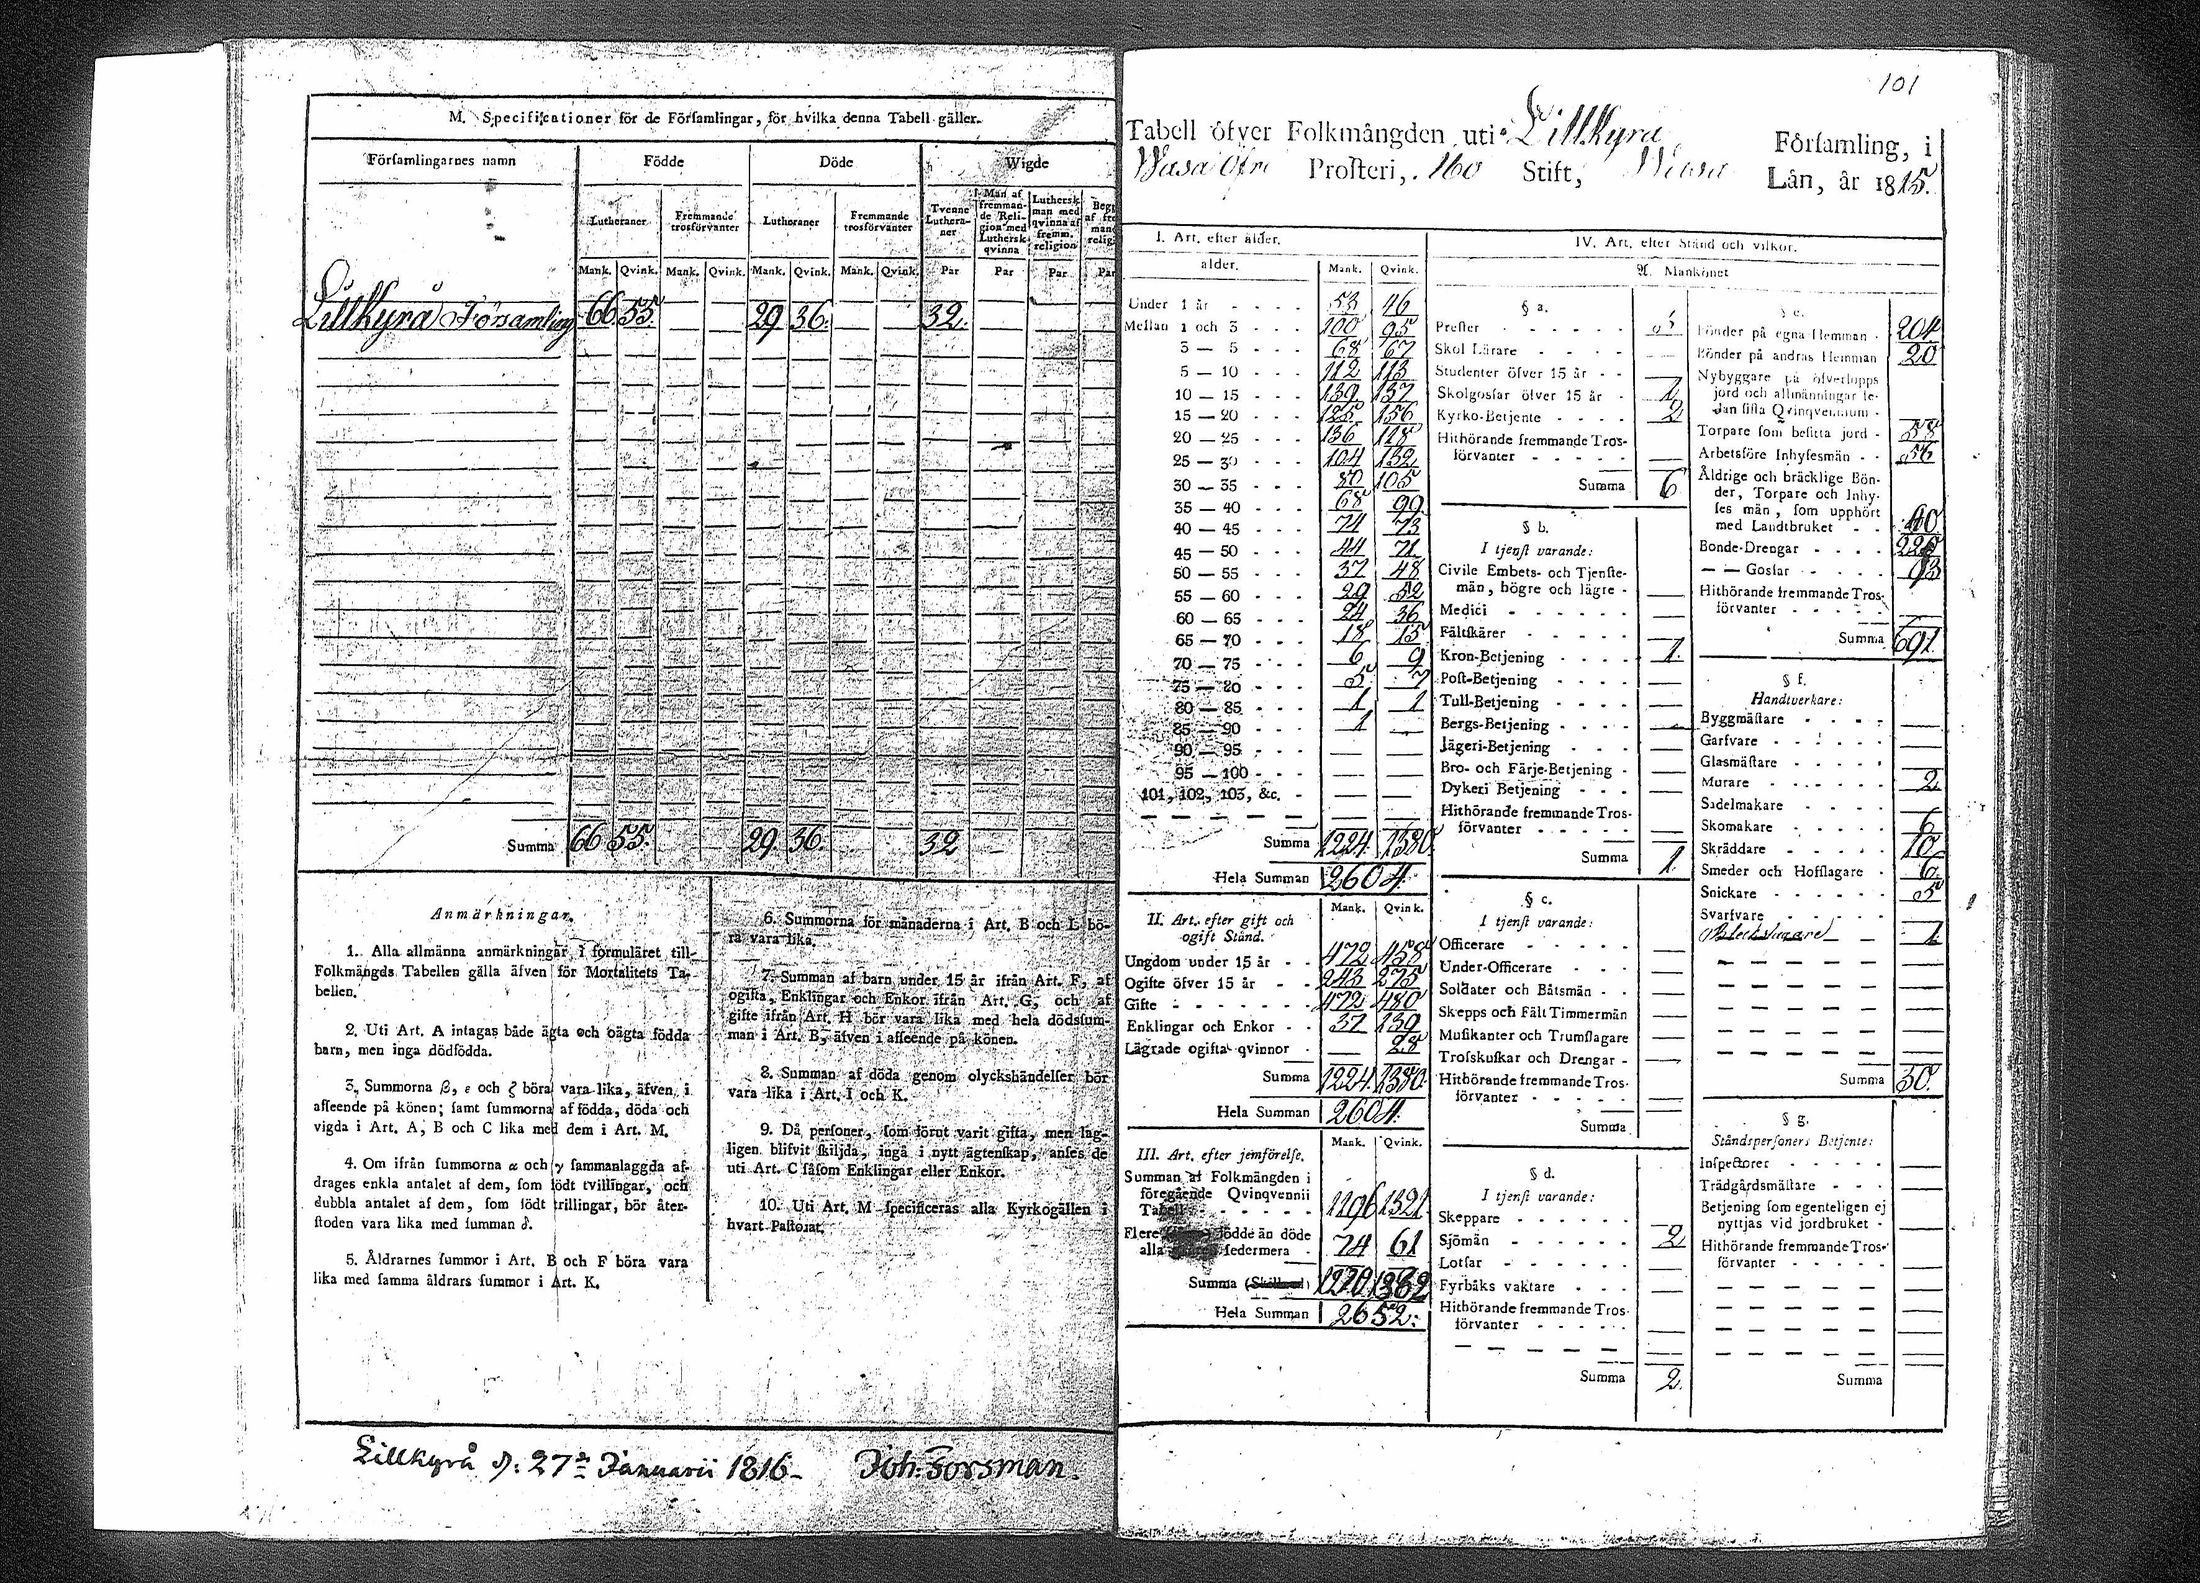 M. Specificationer för de Församlingar, för hvilka denna Tabell gäller.
Församlingarnes namn Födde Döde Wigde
Lutheraner Fremmande trosförvanter Lutheraner Fremmande trosförvanter Tvenne Lutheraner Man af fremmande Religion med Luthersk qvinna Luthersk man med qvinna af fremm. religion
Mank. Qvink. Mank. Qvink. Mank. Qvink. Mank. Qvink. Par Par Par Par
Lillkyrå Församling 66 55. — — 29 36. — — 32.
Summa 66 55. 29. 36. 32
Anmärkningar.
1. Alla allmänna anmärkningar i formuläret till
Folkmängds Tabellen gälla äfven för Mortalitets Ta-
bellen.
2. Uti Art. A intagas både ägta och oägta födda
barn, men inga dödfödda.
3. Summorna β, ε och ζ böra vara lika, äfven i
afseende på könen; samt summorna af födda, döda och
vigda i Art. A, B och C lika med dem i Art. M.
4. Om ifrån summorna α och γ sammanlaggda af-
drages enkla antalet af dem, som födt tvillingar, och
dubbla antalet af dem, som födt trillingar, bör åter-
stoden vara lika med summan δ.
5. Åldrarnes summor i Art. B och F böra vara
lika med samma åldrars summor i Art. K.
6. Summorna för månaderna i Art. B och L bö-
ra vara lika.
7. Summan af barn under 15 år ifrån Art. F, af
ogifta, Enklingar och Enkor ifrån Art. G, och af
gifte ifrån Art. H bör vara lika med hela dödssum-
man i Art. B, äfven i afseende på könen.
8. Summan af döda genom olyckshändelser bör
vara lika i Art. I och K.
9. Då personer, som förut varit gifta, men lag-
ligen blifvit skiljda, ingå i nytt ägtenskap, anses de
uti Art. C såsom Enklingar eller Enkor.
10. Uti Art. M specificeras alla Kyrkogällen i
hvart Pastorat.
Lillkyrå d: 27de Januarii 1816 Joh: Forsman.
101
Tabell öfver Folkmängden uti Lillkyra Församling, i
Wasa Öfre Prosteri, Åbo Stift, Wasa Län, år 1815.
I. Art. efter ålder.
ålder. Mank. Qvink.
Under 1 år - - - 53 46
Mellan 1 och 3 - - - 100 95
3 — 5 - - - 68 67
5 — 10 - - - 112 113
10 — 15 - - - 139 137
15 — 20 - - - 125 156
20 — 25 - - - 136 118
25 — 30 - - - 104 132
30 — 35 - - - 80 105
35 — 40 - - - 68 99
40 — 45 - - - 74 73
45 — 50 - - - 44 71
50 — 55 - - - 37 48
55 — 60 - - - 29 52
60 — 65 - - - 24 36
65 — 70 - - - 18 15
70 — 75 - - - 6 9
75 — 80 - - - 5 7
80 — 85 - - - 1 1
85 — 90 - - - 1 —
90 — 95 - - - — —
95 — 100 - - - — —
101, 102, 103, &c. - — —
Summa 1224. 1380.
Hela Summan 2604.
II. Art. efter gift och ogift Stånd. Mank. Qvink.
Ungdom under 15 år - - 472 458
Ogifte öfver 15 år - - 243 275
Gifte - - - - - - - 472 480
Enklingar och Enkor - - 37 139
Lägrade ogifta qvinnor - — 28
Summa 1224. 1380.
Hela Summan 2604.
III. Art. efter jemförelse. Mank. Qvink.
Summan af Folkmängden i
föregående Qvinqvennii
Tabell - - - - - - 1196 1321
Flere födde än döde
alla sedermera - 74 61
Summa 1270. 1382
Hela Summan 2652.
IV. Art. efter Stånd och vilkor.
A. Mankönet
§ a.
Prester - - - - - - 3
Skol Lärare - - - -
Studenter öfver 15 år - -
Skolgossar öfver 15 år - 1
Kyrko-Betjente - - - - 2
Hithörande fremmande Tros-
förvanter - - - - -
Summa 6
§ b.
I tjenst varande:
Civile Embets- och Tjenste-
män, högre och lägre -
Medici - - - - - -
Fältskärer - - - - -
Kron-Betjening - - - - 1.
Post-Betjening - - - -
Tull-Betjening - - - -
Bergs-Betjening - - - -
Jägeri-Betjening - - -
Bro- och Färje-Betjening -
Dykeri Betjening - - -
Hithörande fremmande Tros-
förvanter - - - - -
Summa 1.
§ c.
I tjenst varande:
Officerare - - - - -
Under-Officerare - - -
Soldater och Båtsmän - -
Skepps och Fält Timmermän
Musikanter och Trumslagare
Trosskuskar och Drengar -
Hithörande fremmande Tros-
förvanter - - - - -
Summa
§ d.
I tjenst varande:
Skeppare - - - - - -
Sjömän - - - - - - 2
Lotsar - - - - - -
Fyrbåks vaktare - - -
Hithörande fremmande Tros-
förvanter - - - - -
Summa 2.
§ e.
Bönder på egna Hemman - 204
Bönder på andras Hemman 20
Nybyggare på öfverlopps
jord och allmänningar se-
dan sista Qvinqvennium -
Torpare som besitta jord - 58
Arbetsföre Inhysesmän - - 56
Åldrige och bräcklige Bön-
der, Torpare och Inhy-
ses män, som upphört
med Landtbruket - - 40
Bonde-Drengar - - - -
— — Gossar - - - - 93
Hithörande fremmande Tros-
förvanter - - - - -
Summa 691.
§ f.
Handtverkare:
Byggmästare - - - -
Garfvare - - - - - -
Glasmästare - - - - -
Murare - - - - - - 2
Sadelmakare - - - -
Skomakare - - - - - 6
Skräddare - - - - - 10
Smeder och Hofslagare - 6
Snickare - - - - - - 5
Svarfvare - - - - -
Bleckslagare — — 1.
Summa 30.
§ g.
Ståndspersoners Betjente:
Inspectorer - - - - -
Trädgårdsmästare - - -
Betjening som egenteligen ej
nyttjas vid jordbruket -
Hithörande fremmande Tros-
förvanter - - - - -
Summa